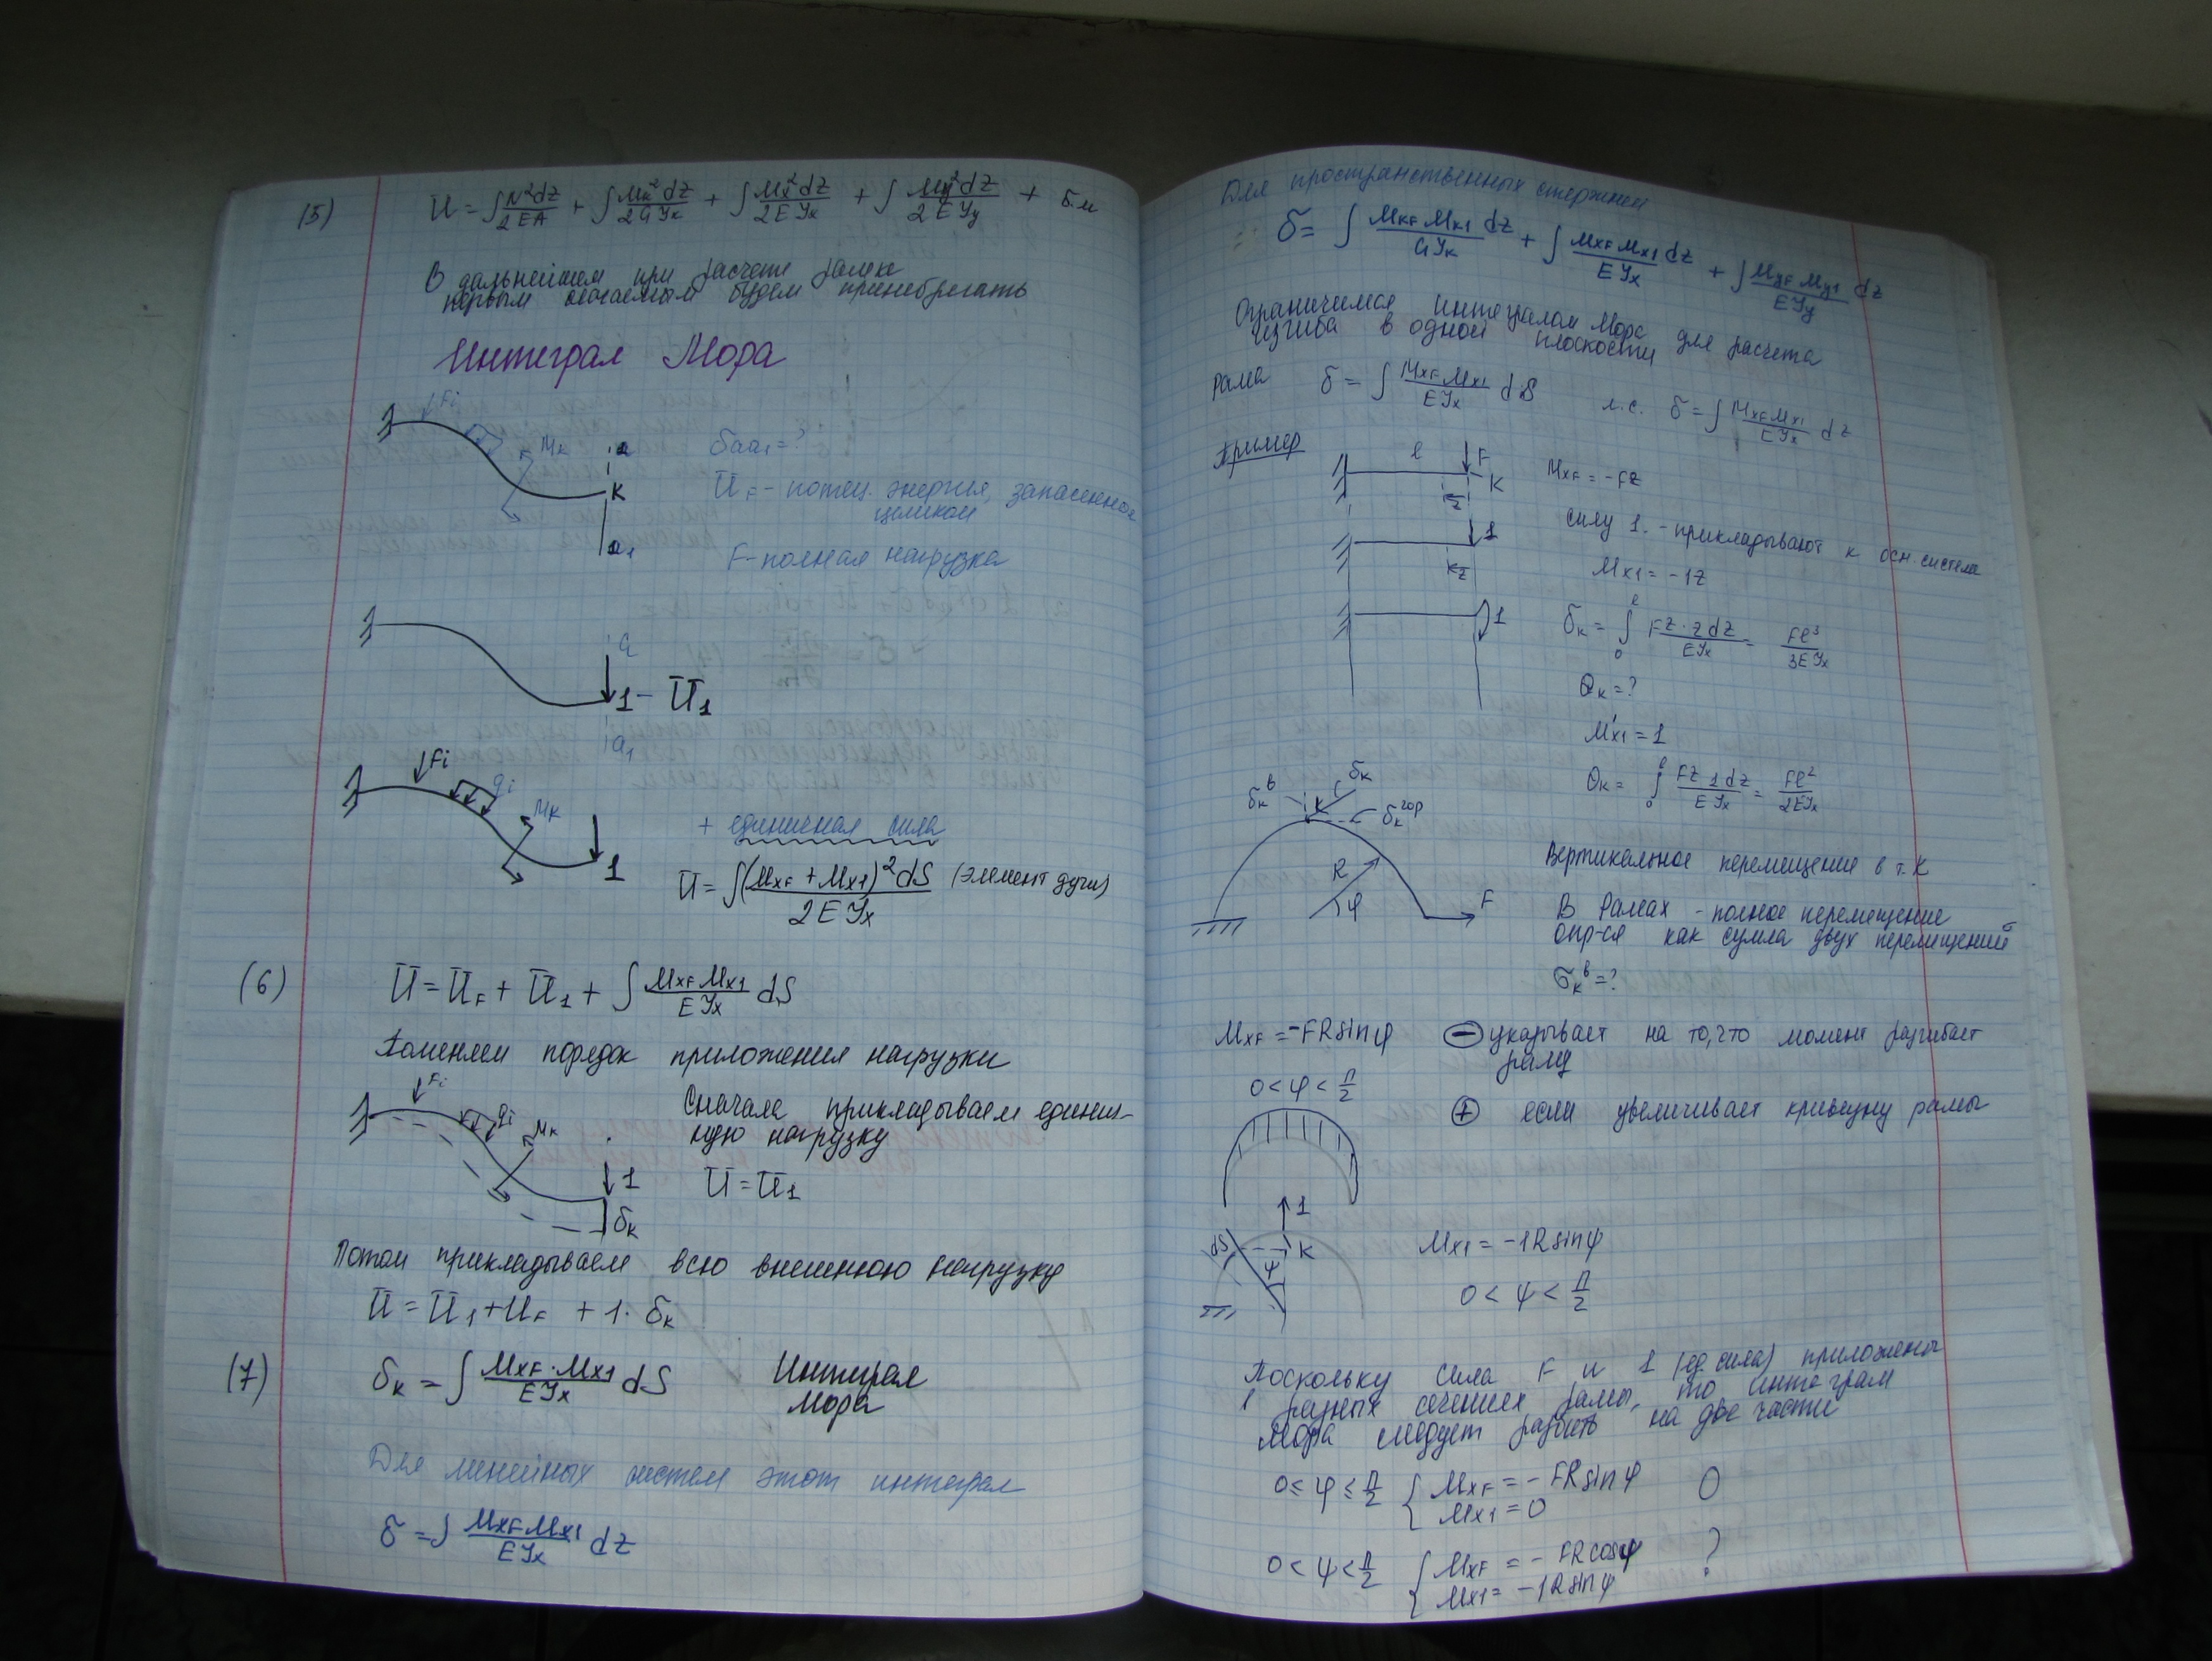 (5) U = ∫ N²dz / 2EA + ∫ Mк²dz / 2GJк + ∫ Mx²dz / 2EJx + ∫ My²dz / 2EJy + б.м
В дальнейшем при расчете рамы
первым слагаемым будем принебрегать
Интеграл Мора
Fi
Mк a δaa1=?
K U_F - потец. энергия, запасенная
целиком
a1 F - полная нагрузка
a
1 - U1
a1
Fi
qi
Mк
+ единичная сила
1
U = ∫ (MxF + Mx1)² dS / 2EJx (элемент дуги)
(6) U = U_F + U1 + ∫ MxF Mx1 / EJx dS
Поменяем порядок приложения нагрузки
Fi
qi Mк
Сначала прикладываем единич-
ную нагрузку
1 U = U1
δк
Потом прикладываем всю внешнюю нагрузку
U = U1 + U_F + 1·δк
(7) δк = ∫ MxF·Mx1 / EJx dS Интеграл
Мора
Для линейных систем этот интеграл
δ = ∫ MxF Mx1 / EJx dz
Для пространственных стержней
δ = ∫ MкF Mк1 dz / GJк + ∫ MxF Mx1 dz / EJx + ∫ MyF My1 dz / EJy
Ограничимся интегралом Мора для расчета
изгиба в одной плоскости
рама δ = ∫ MxF Mx1 / EJx dS л.с. δ = ∫ MxF Mx1 / EJx dz
Пример
l F K z MxF = -Fz
1 z силу 1. - прикладывают к осн. система
Mx1 = -1z
1 δк = ∫₀^l Fz·z dz / EJx = Fl³ / 3EJx
Θк = ?
M'x1 = 1
Θк = ∫₀^l Fz 1 dz / EJx = Fl² / 2EJx
δк^в K δк δк^гор
R φ F
Вертикальное перемещение в т. K
В Рамах - полное перемещение
опр-ся как сумма двух перемещений
δк^в = ?
MxF = -FR sinφ ⊖ указывает на то, что момент разгибает
раму
0 < φ < π/2
⊕ если увеличивает кривизну рамы
1
dS K ψ Mx1 = -1R sinψ
0 < ψ < π/2
Поскольку сила F и 1 (ед. сила) приложены
в разных сечениях рамы, то интеграл
Мора следует разбить на две части
0 ≤ φ ≤ π/2 { MxF = -FR sinφ 0
Mx1 = 0
0 < ψ < π/2 { MxF = -FR cosψ ?
Mx1 = -1R sinψ